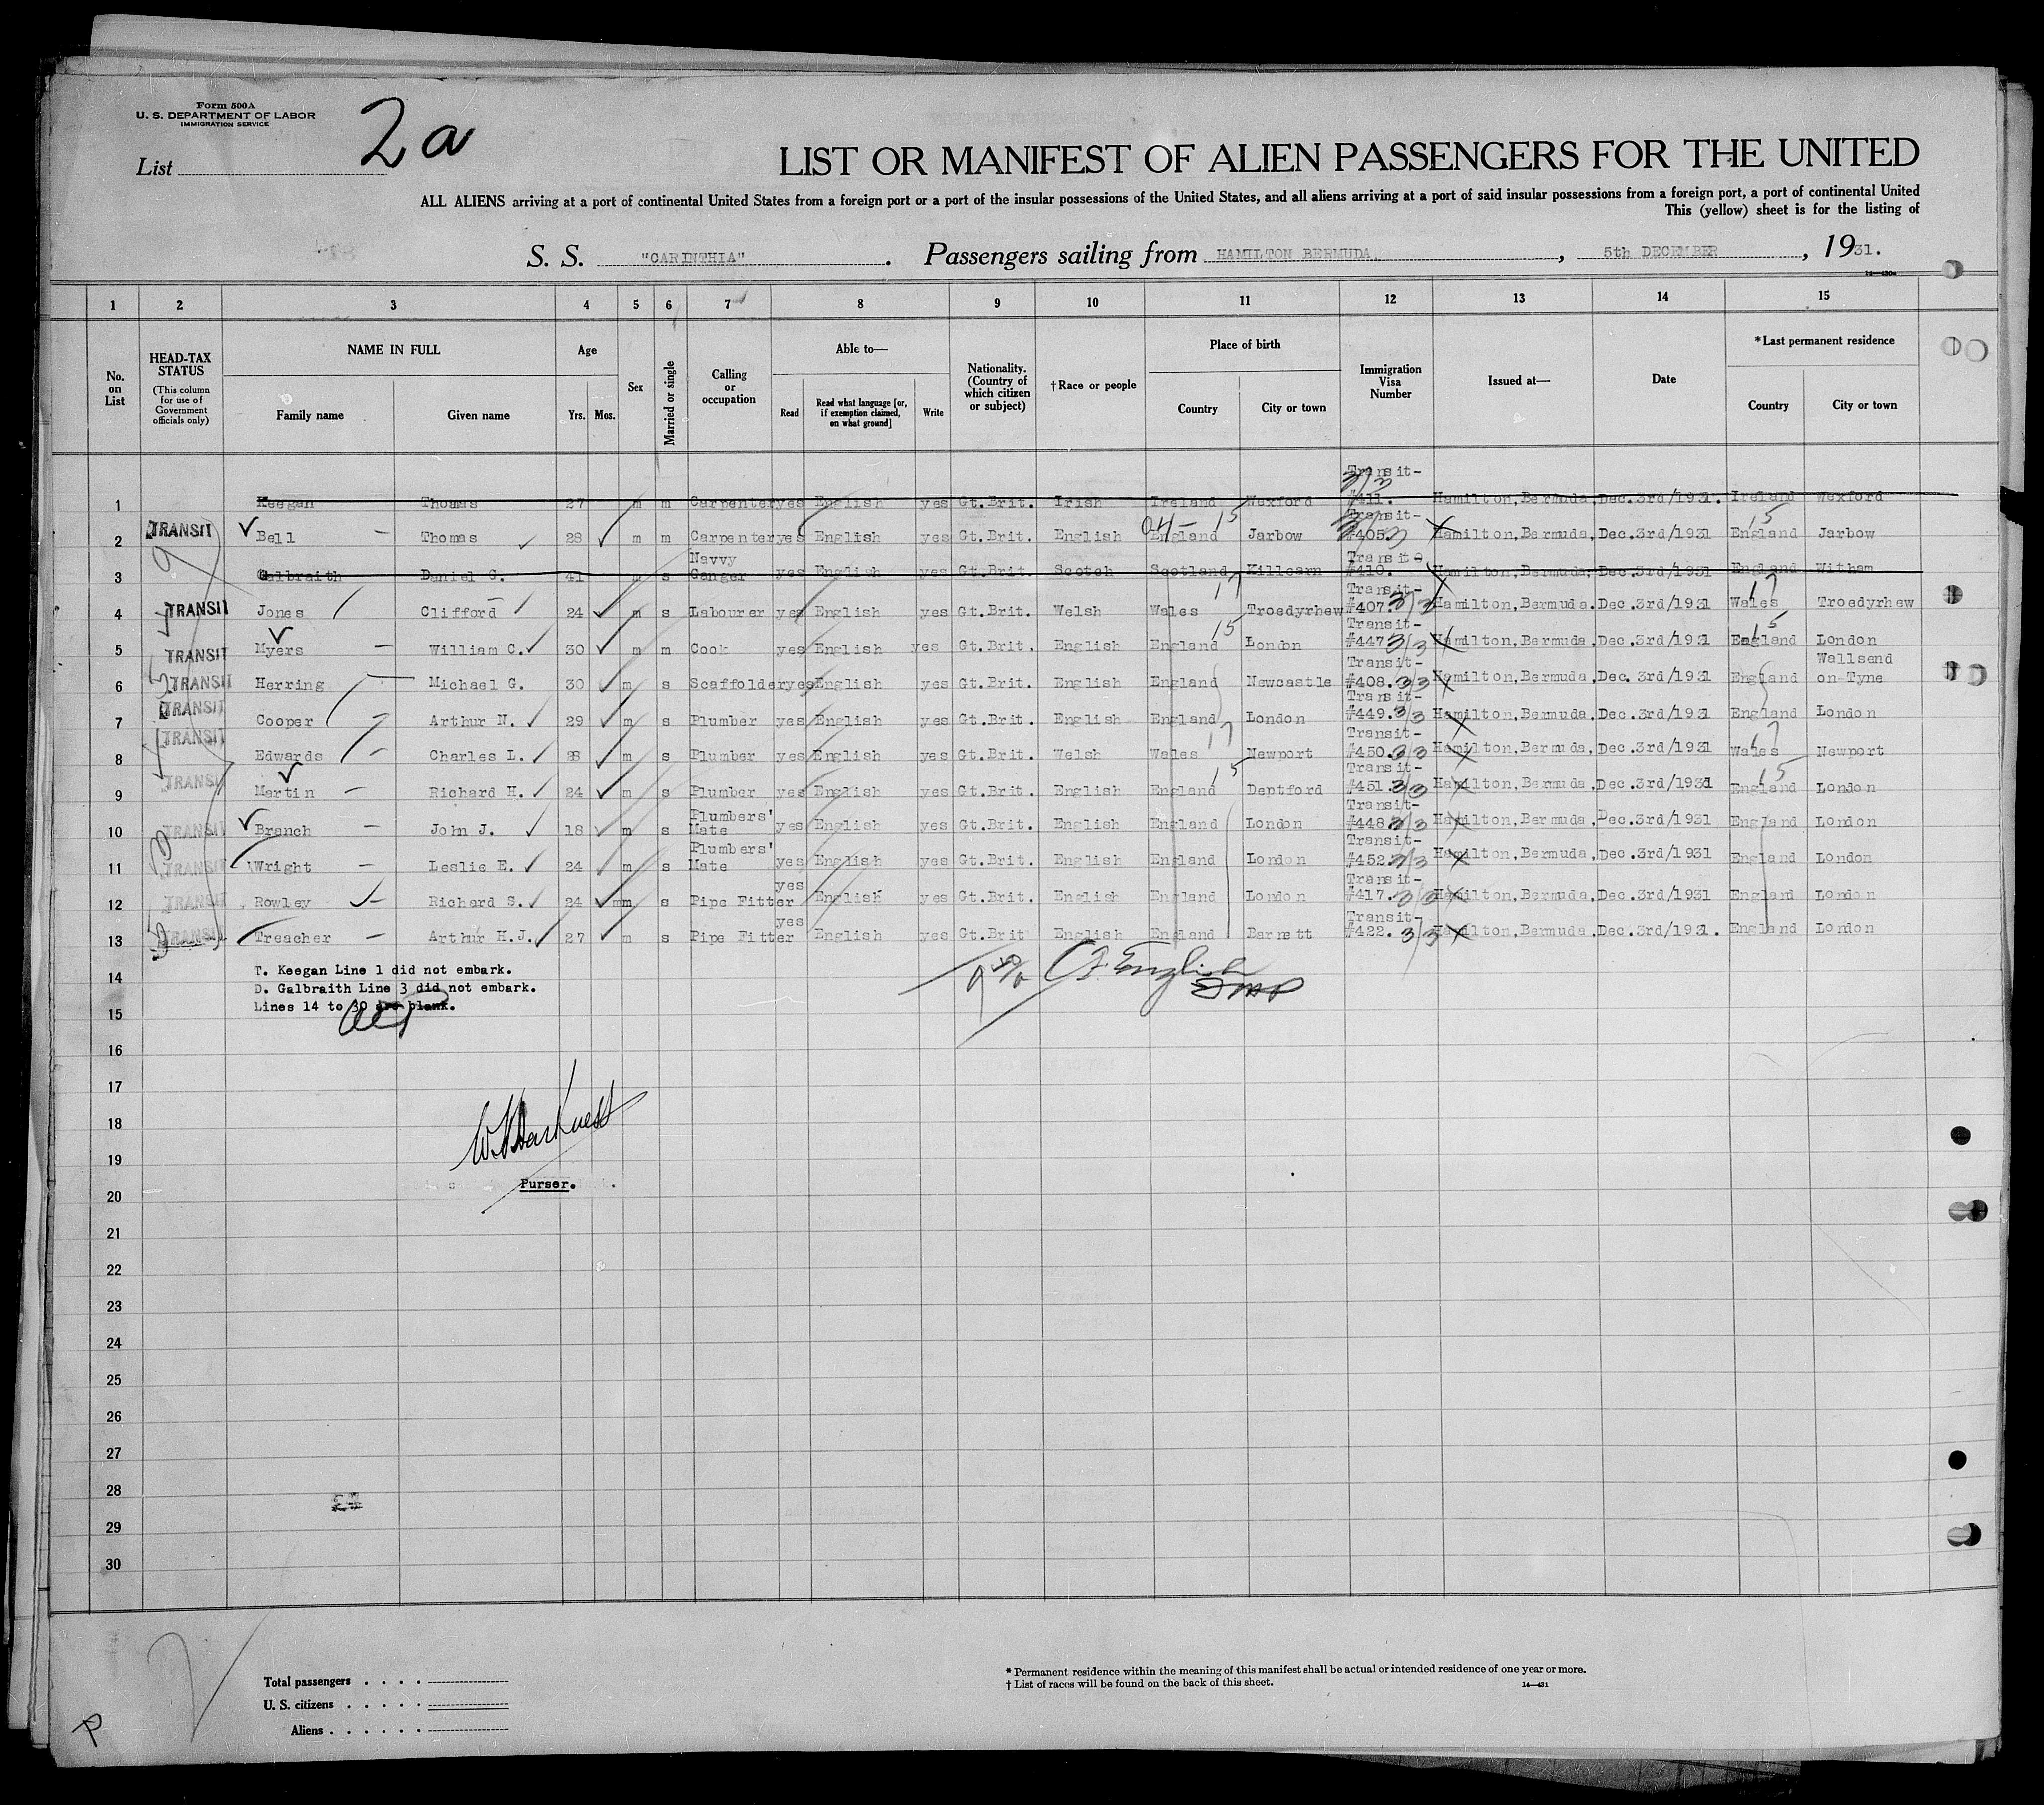 Form 500A
U. S. DEPARTMENT OF LABOR
IMMIGRATION SERVICE
List 2a
LIST OR MANIFEST OF ALIEN PASSENGERS FOR THE UNITED
ALL ALIENS arriving at a port of continental United States from a foreign port or a port of the insular possessions of the United States, and all aliens arriving at a port of said insular possessions from a foreign port, a port of continental United
This (yellow) sheet is for the listing of
S. S. "CARINTHIA". Passengers sailing from HAMILTON BERMUDA, 5th DECEMBER, 1931.
1 2 3 4 5 6 7 8 9 10 11 12 13 14 15
No. on List
HEAD-TAX STATUS (This column for use of Government officials only)
NAME IN FULL Family name Given name
Age Yrs. Mos.
Sex
Married or single
Calling or occupation
Able to— Read Read what language [or, if exemption claimed, on what ground] Write
Nationality. (Country of which citizen or subject)
†Race or people
Place of birth Country City or town
Immigration Visa Number
Issued at—
Date
*Last permanent residence Country City or town
1 Keegan Thomas 27 m m Carpenter yes English yes Gt.Brit. Irish Ireland Wexford Transit- #411. Hamilton, Bermuda, Dec.3rd/1931. Ireland Wexford
2 TRANSIT Bell Thomas 28 m m Carpenter yes English yes Gt.Brit. English England Jarbow Transit- #405. Hamilton, Bermuda, Dec.3rd/1931 England Jarbow
3 Galbraith Daniel C. 41 m s Navvy Ganger yes English yes Gt.Brit. Scotch Scotland Killearn Transit #410. Hamilton, Bermuda, Dec.3rd/1931 England Witham
4 TRANSIT Jones Clifford 24 m s Labourer yes English yes Gt.Brit. Welsh Wales Troedyrhew Transit- #407. Hamilton, Bermuda. Dec.3rd/1931 Wales Troedyrhew
5 TRANSIT Myers William C. 30 m m Cook yes English yes Gt.Brit. English England London Transit- #447 Hamilton, Bermuda, Dec.3rd/1931 England London
6 TRANSIT Herring Michael G. 30 m s Scaffolder yes English yes Gt.Brit. English England Newcastle Transit- #408. Hamilton, Bermuda, Dec. 3rd/1931 England Wallsend on-Tyne
7 TRANSIT Cooper Arthur N. 29 m s Plumber yes English yes Gt.Brit. English England London Transit- #449. Hamilton, Bermuda, Dec.3rd/1931 England London
8 TRANSIT Edwards Charles L. m s Plumber yes English yes Gt.Brit. Welsh Wales Newport Transit- #450. Hamilton, Bermuda, Dec.3rd/1931 Wales Newport
9 TRANSIT Martin Richard H. 24 m s Plumber yes English yes Gt.Brit. English England Deptford Transit- #451. Hamilton, Bermuda, Dec.3rd/1931 England London
10 TRANSIT Branch John J. 18 m s Plumbers' Mate yes English yes Gt.Brit. English England London Transit- #448 Hamilton, Bermuda, Dec.3rd/1931 England London
11 TRANSIT Wright Leslie E. 24 m s Plumbers' Mate yes English yes Gt.Brit. English England London Transit- #452 Hamilton, Bermuda, Dec.3rd/1931 England London
12 TRANSIT Rowley Richard S. 24 m s Pipe Fitter yes English yes Gt.Brit. English England London Transit- #417. Hamilton, Bermuda, Dec.3rd/1931 England London
13 TRANSIT Treacher Arthur H.J. 27 m s Pipe Fitter yes English yes Gt.Brit English England Barnett Transit- #422. Hamilton, Bermuda, Dec.3rd/1931. England London
14 T. Keegan Line 1 did not embark.
D. Galbraith Line 3 did not embark.
15 Lines 14 to 30 are blank.
16
17
18
19
Purser.
20
21
22
23
24
25
26
27
28
29
30
Total passengers
U. S. citizens
Aliens
* Permanent residence within the meaning of this manifest shall be actual or intended residence of one year or more.
† List of races will be found on the back of this sheet.
14—431